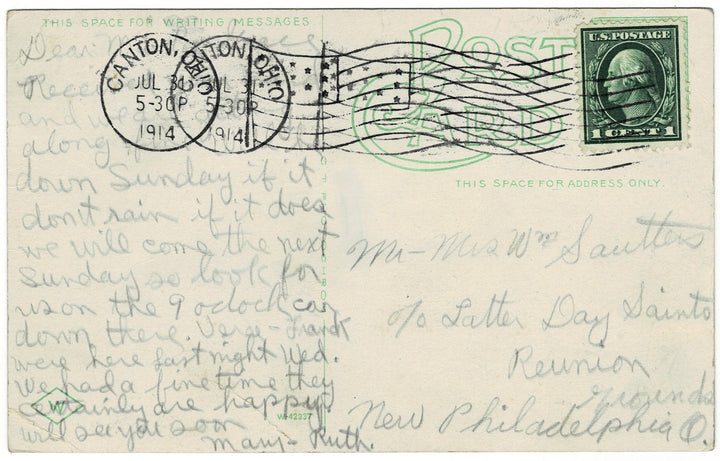 THIS SPACE FOR WRITING MESSAGES
Dear
Receiv
and we are
along
down Sunday if it
don't rain if it does
we will come the next
Sunday so look for
us on the 9 oclock car
down there. Verge - Frank
were here last night Wed.
We had a fine time they
certainly are happy.
will see you soon
Mary - Ruth.
W
W-42237
CANTON, OHIO
JUL 30
5-30P
1914
CANTON, OHIO
JUL 3
5-30P
1914
POST
CARD
U.S. POSTAGE
1 CENT 1
THIS SPACE FOR ADDRESS ONLY.
Mr - Mrs Wm Sautters
c/o Latter Day Saints
Reunion
grounds
New Philadelphia O.